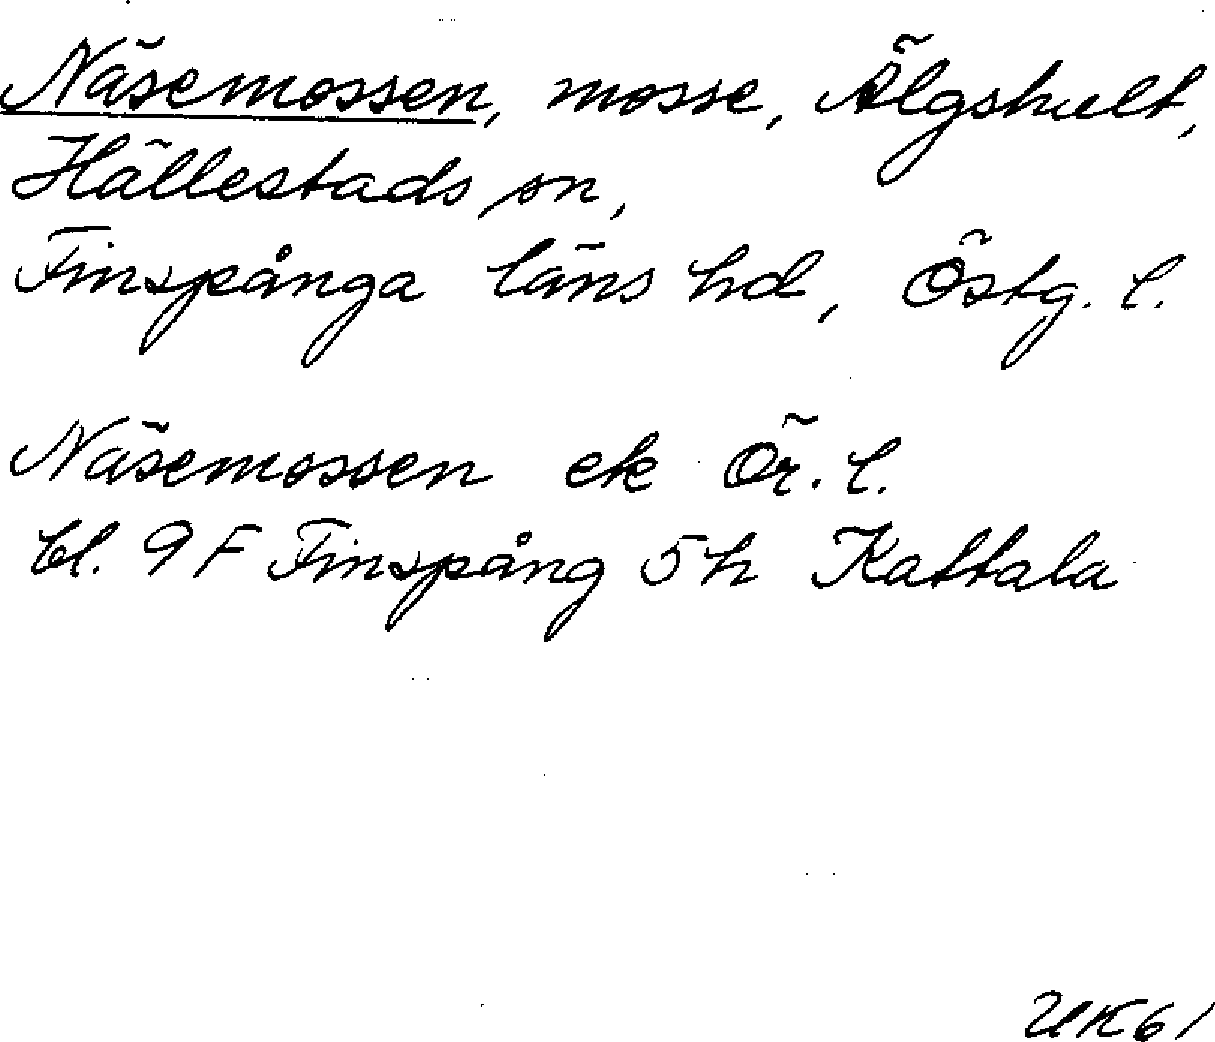 Näsemossen, mosse, Älgshult,
Hällestads sn,
Finspånga läns hd, Östg. l.
Näsemossen ek Ör. l.
bl. 9 F Finspång 5 h Kattala
UK61